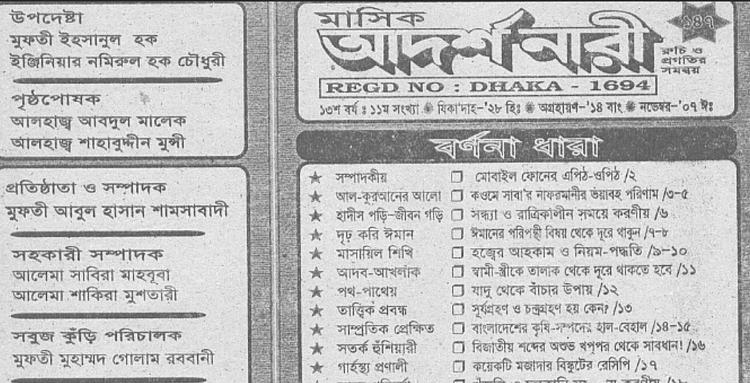 উপদেষ্টা
মুফতী ইহসানুল হক
ইঞ্জিনিয়ার নমিরুল হক চৌধুরী
পৃষ্ঠপোষক
আলহাজ্ব আবদুল মালেক
আলহাজ্ব শাহাবুদ্দীন মুন্সী
প্রতিষ্ঠাতা ও সম্পাদক
মুফতী আবুল হাসান শামসাবাদী
সহকারী সম্পাদক
আলেমা সাবিরা মাহবূবা
আলেমা শাকিরা মুশতারী
সবুজ কুঁড়ি পরিচালক
মুফতী মুহাম্মদ গোলাম রববানী
মাসিক
আদর্শ নারী
১৪৭
রুচি ও
প্রগতির
সমন্বয়
REGD NO : DHAKA - 1694
১৩শ বর্ষ ঃ ১১ম সংখ্যা ❋ যিকা'দাহ-'২৮ হিঃ ❋ অগ্রহায়ণ-'১৪ বাং ❋ নভেম্বর-'০৭ ঈঃ
বর্ণনা ধারা
★ সম্পাদকীয় ❐ মোবাইল ফোনের এপিঠ-ওপিঠ /২
★ আল-কুরআনের আলো ❐ কওমে সাবা'র নাফরমানীর ভয়াবহ পরিণাম /৩-৫
★ হাদীস পড়ি-জীবন গড়ি ❐ সন্ধ্যা ও রাত্রিকালীন সময়ে করণীয় /৬
★ দৃঢ় করি ঈমান ❐ ঈমানের পরিপন্থী বিষয় থেকে দূরে থাকুন /৭-৮
★ মাসায়িল শিখি ❐ হজ্বের আহকাম ও নিয়ম-পদ্ধতি /৯-১০
★ আদব-আখলাক ❐ স্বামী-স্ত্রীকে তালাক থেকে দূরে থাকতে হবে /১১
★ পথ-পাথেয় ❐ যাদু থেকে বাঁচার উপায় /১২
★ তাত্ত্বিক প্রবন্ধ ❐ সূর্যগ্রহণ ও চন্দ্রগ্রহণ হয় কেন? /১৩
★ সাম্প্রতিক প্রেক্ষিত ❐ বাংলাদেশের কৃষি-সম্পদের হাল-বেহাল /১৪-১৫
★ সতর্ক হুঁশিয়ারী ❐ বিজাতীয় শব্দের অশুভ খপ্পর থেকে সাবধান! /১৬
★ গার্হস্থ্য প্রণালী ❐ কয়েকটি মজাদার বিস্কুটের রেসিপি /১৭